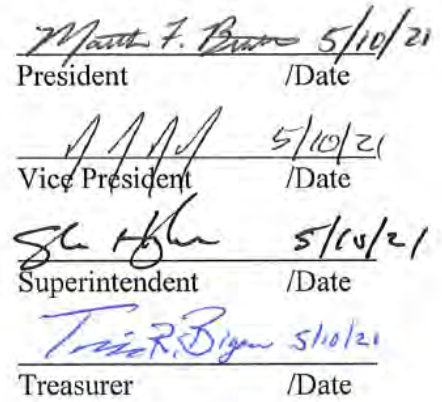 F. 5/10/21
President /Date
5/10/21
Vice President /Date
5/10/21
Superintendent /Date
R. 5/10/21
Treasurer /Date